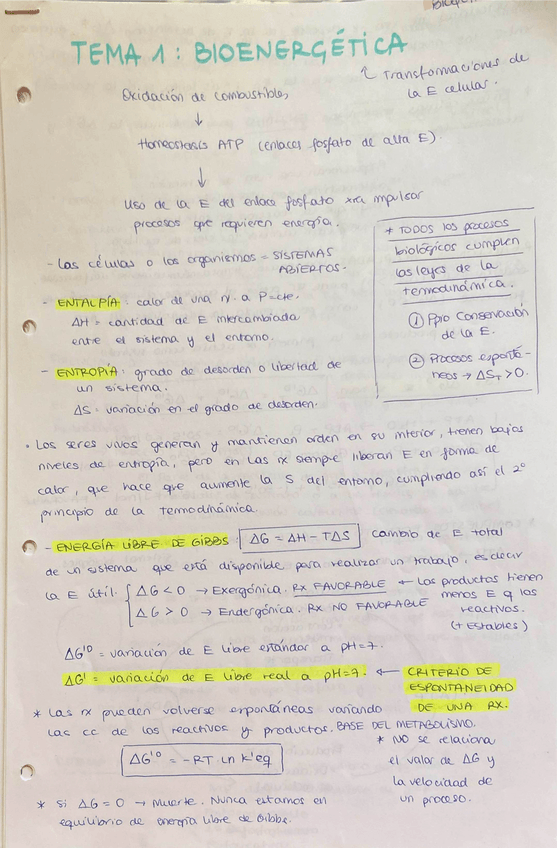 TEMA 1: BIOENERGÉTICA
↳ Transformaciones de
la E celular.
Oxidación de combustible,
↓
Homeostasis ATP (enlaces fosfato de alta E).
↓
Uso de la E del enlace fosfato xra impulsar
procesos que requieren energía.
* TODOS los procesos
biológicos cumplen
las leyes de la
termodinámica.
① Ppio Conservación
de la E.
② Procesos espontá-
neos → ΔS_T > 0.
- Las células o los organismos = SISTEMAS
ABIERTOS.
- ENTALPÍA: calor de una rx a P=cte.
ΔH = cantidad de E intercambiada
entre el sistema y el entorno.
- ENTROPÍA: grado de desorden o libertad de
un sistema.
ΔS: variación en el grado de desorden.
• Los seres vivos generan y mantienen orden en su interior, tienen bajos
niveles de entropía, pero en las rx siempre liberan E en forma de
calor, que hace que aumente la S del entorno, cumpliendo así el 2º
principio de la termodinámica.
- ENERGÍA LIBRE DE GIBBS: ΔG = ΔH - TΔS cambio de E total
de un sistema que está disponible para realizar un trabajo, es decir
la E útil. { ΔG < 0 → Exergónica. RX FAVORABLE ← Los productos tienen
ΔG > 0 → Endergónica. RX NO FAVORABLE menos E q los
reactivos.
(+ Estables)
ΔG'º = variación de E libre estándar a pH=7.
ΔG' = variación de E libre real a pH=7. ← CRITERIO DE
ESPONTANEIDAD
DE UNA RX.
* Las rx pueden volverse espontáneas variando
las cc de los reactivos y productos. BASE DEL METABOLISMO.
ΔG'º = -RT·Ln K'eq
* NO se relaciona
el valor de ΔG y
la velocidad de
un proceso.
* Si ΔG = 0 → Muerte. Nunca estamos en
equilibrio de energía libre de Gibbs.